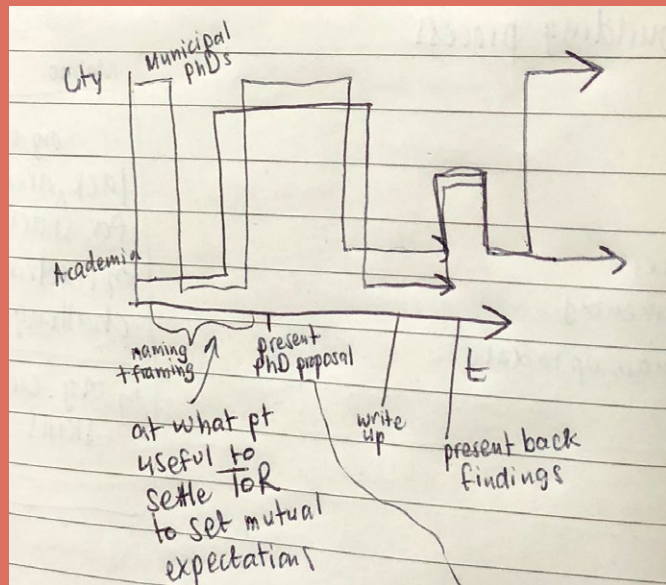 City
Municipal
PhDs
Academia
naming
+ framing
present
PhD proposal
t
write
up
present back
findings
at what pt
useful to
settle ToR
to set mutual
expectations